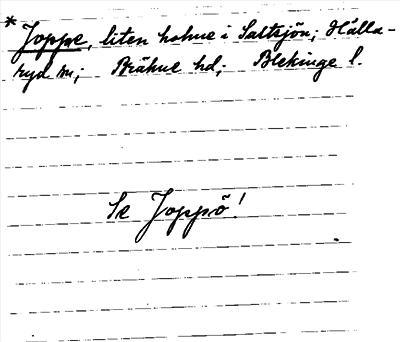 * Joppe, liten holme i Saltsjön; Hälla-
ryd sn; Bräkne hd; Blekinge l.
Se Joppö!